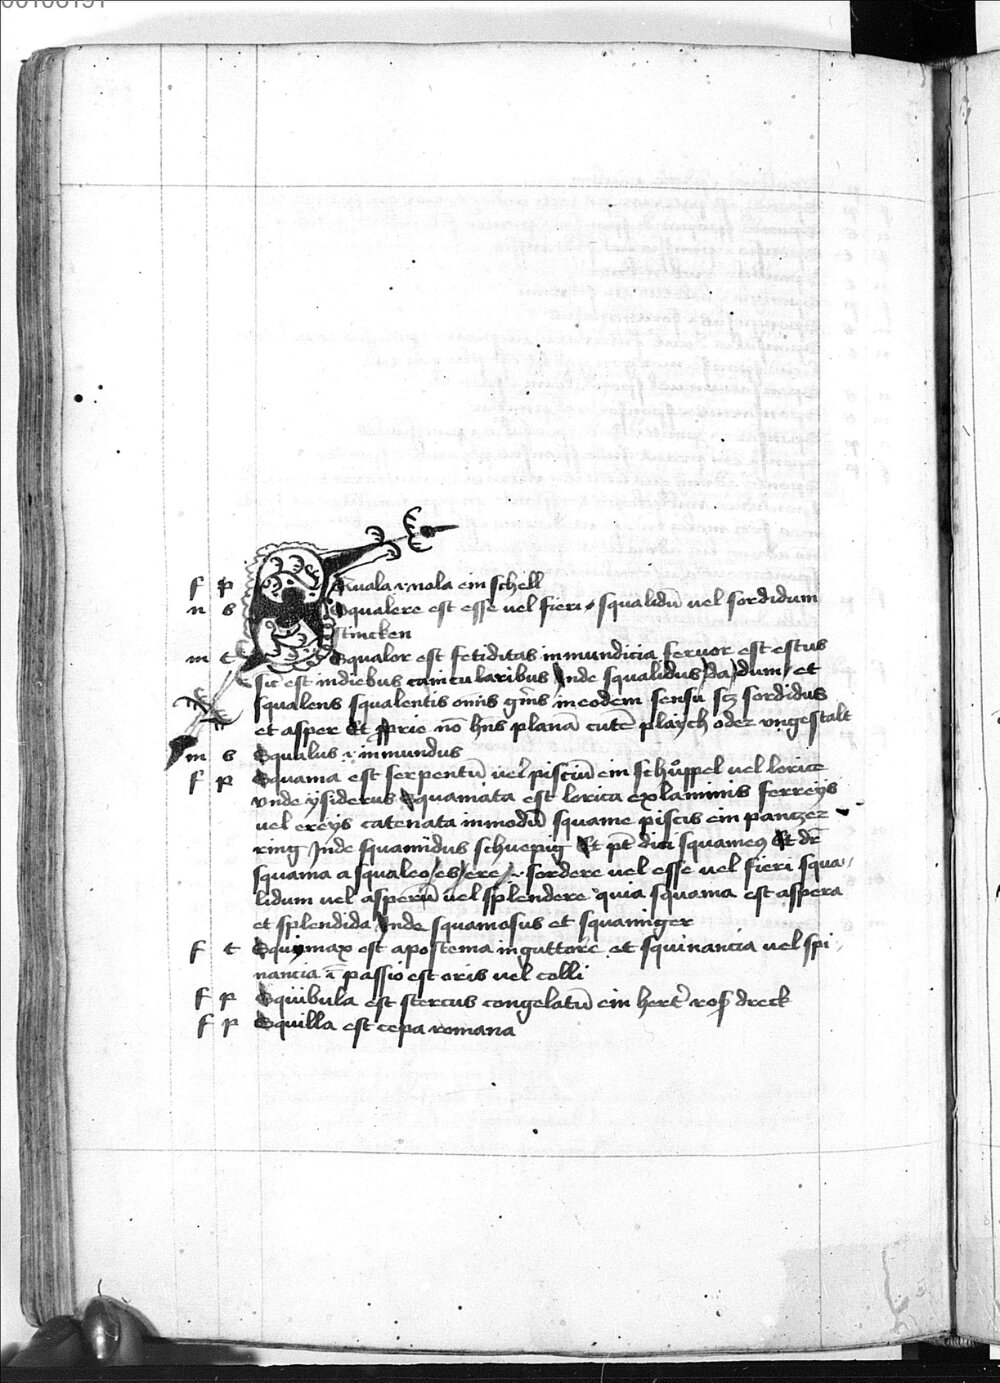 00100191
f p Squala .i. nola ein schell
n s Squalere est esse uel fieri squalidū uel sordidum
stincken
m t Squalor est fetiditas inmundicia feruor est estus
sic̄ est indiebus canicularibus Inde squalidus da dum et
squalens squalentis om̄is gn̄is ineodem sensu scz sordidus
et asper Et ꝓprie nō hn̄s planā cutē playch oder vngestalt
m s Squalus .i. inmundus
f p Squama est serpentū uel pisciū ein schůppel uel lorice
vnde ysiderus Squamata est lorica exlaminis ferreys
uel ereys catenata inmodū squame piscis ein pantzer
ring Inde squamidus schuepig Et pt̄ dici squameꝰ Et dr̄
squama a squaleo es ere .i. sordere uel esse uel fieri squa
lidum uel asperū uel splendere quia squama est aspera
et splendida Inde squamosus et squamiger
f t Squimax est apostema inguttore et squinancia uel spi
nancia ī passio est oris uel colli
f p Squibula est stercus congelatū ein hert rosz dreck
f p Squilla est cepa romana